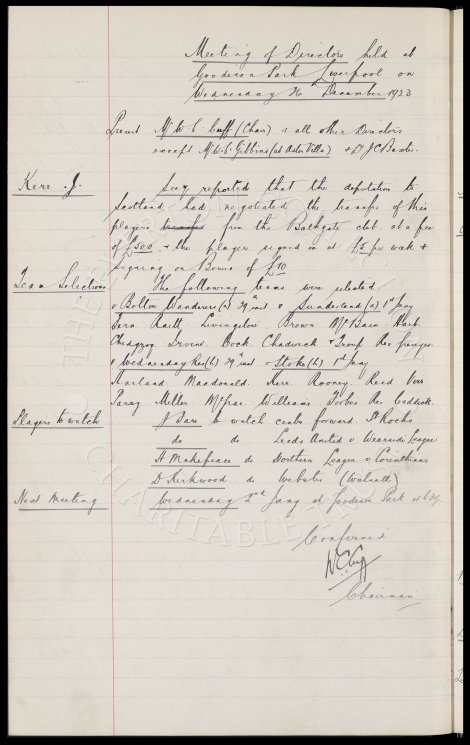 Meeting of Directors held at
Goodison Park Liverpool on
Wednesday 26th December 1923
Present Mr W. C. Cuff (Chair) & all other Directors
except Mr W. C. Gibbins (at Aston Villa) & Dr J C Baxter.
Kerr. J. Secy reported that the deputation to
Scotland had negotiated the transfer of this
player from the Bathgate club at a fee
of £500 & the player signed on at £5 per week &
signing on Bonus of £10
Team Selections The following teams were selected
v Bolton Wanderers (a) 29th inst & Sunderland (a) 1st Jany
Fern Raitt Livingstone Brown McBain Hart
Chedgzoy Irvine Cock Chadwick & Troup Res
v Wednesday Res (h) 29th inst & Stoke (h) 1st Jany
Harland Macdonald Kerr Rooney Reid Virr
Parry Miller Williams Forbes Res
Players to watch J Bare to watch centre forward St Rochs
do do Leeds United v Wearside League
H Makepeace do Northern League v Corinthians
D Kirkwood do Webster (Walsall)
Next Meeting Wednesday 2nd Jany at Goodison Park at
Confirmed
W C Cuff
Chairman